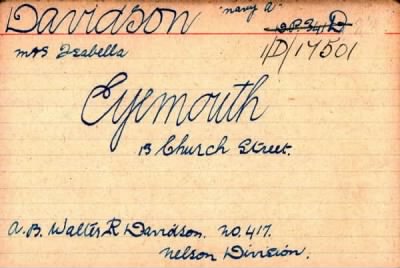 Davidson "navy a" D
Mrs Isabella 1/D/17501
Eyemouth
13 Church Street.
A.B. Walter R Davidson. No. 417.
Nelson Division.